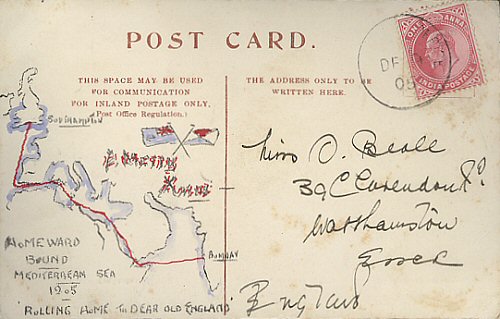 POST CARD.
THIS SPACE MAY BE USED
FOR COMMUNICATION
FOR INLAND POSTAGE ONLY.
(Post Office Regulation.)
THE ADDRESS ONLY TO BE
WRITTEN HERE.
ONE ANNA
INDIA POSTAGE
DE
05
SOUTHAMPTON
BOMBAY
HOMEWARD
BOUND
MEDITERREAN SEA
1905
'ROLLING HOME TO DEAR OLD ENGLAND'
Miss O. Beale
39 Clarendon Rd
Walthamston
Essex
England